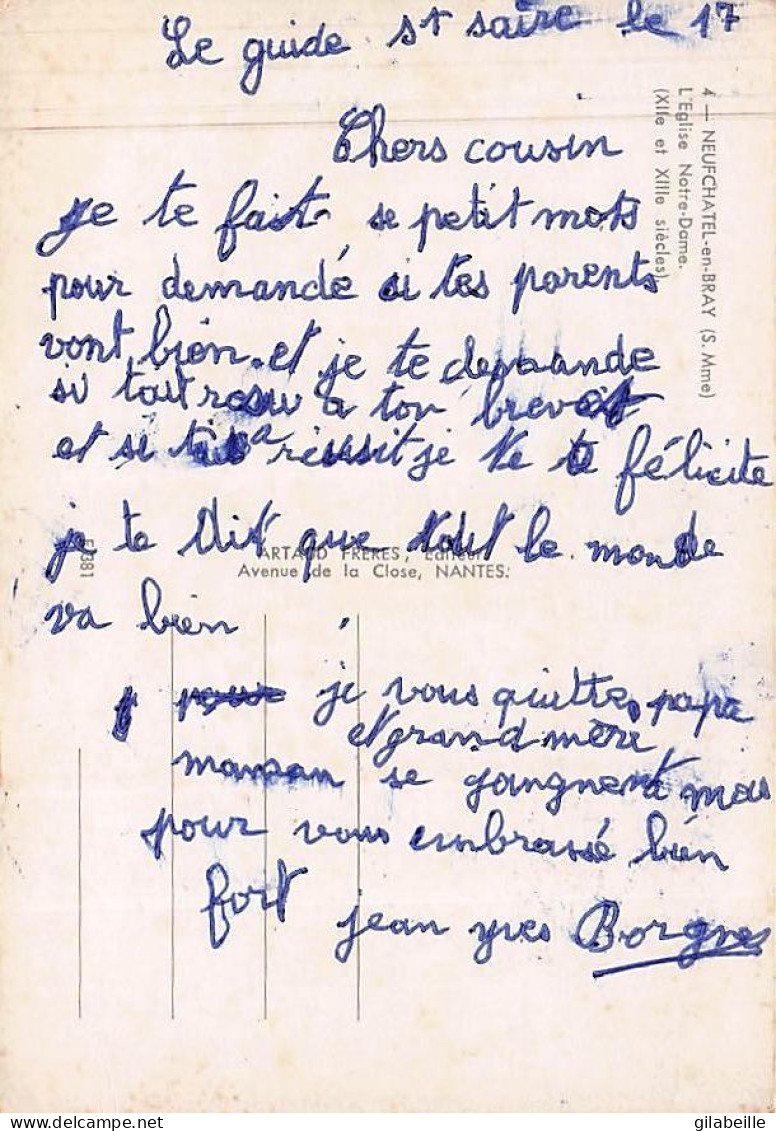 Le guide st saire le 17
4 — NEUFCHATEL-en-BRAY (S. Mme)
L'Eglise Notre-Dame.
(XIIe et XIIIe siècles)
Chers cousin
je te fait se petit mots
pour demandé si tes parents
vont bien et je te demande
si tout a ton brevet
et si réussit je te félicite
je te dit que tout le monde
ARTAUD FRÈRES, Editeur
Avenue de la Close, NANTES.
va bien
je vous quitte, papa
et grand mère
maman se joingnent a mois
pour vous embrassé bien
fort jean yves Borgnes
gilabeille